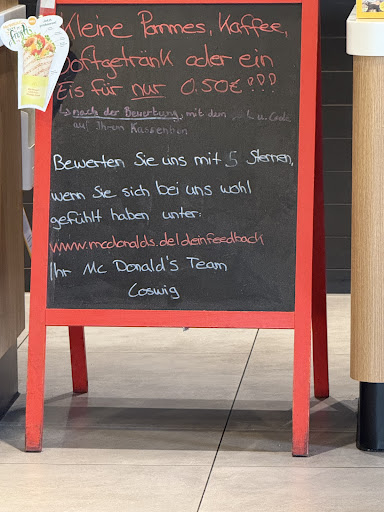 Kleine Pommes, Kaffee,
Softgetränk oder ein
Eis für nur 0.50€ !!!
↳ nach der Bewertung, mit dem u. Code
auf Ihrem Kassenbon
Bewerten Sie uns mit 5 Sternen,
wenn Sie sich bei uns wohl
gefühlt haben unter:
www.mcdonalds.de/deinfeedback
Ihr Mc Donald's Team
Coswig